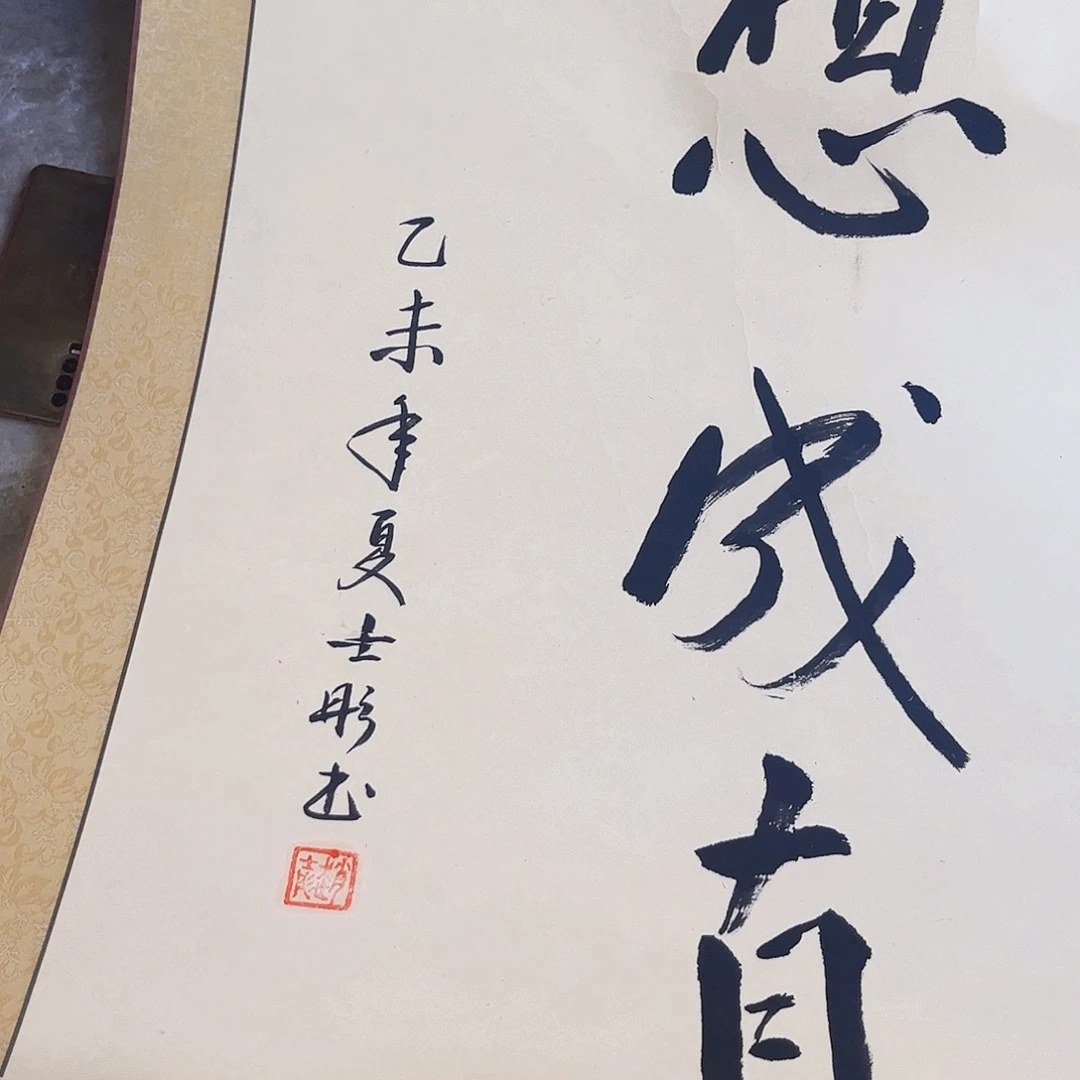 想成真
乙未年夏士彤书